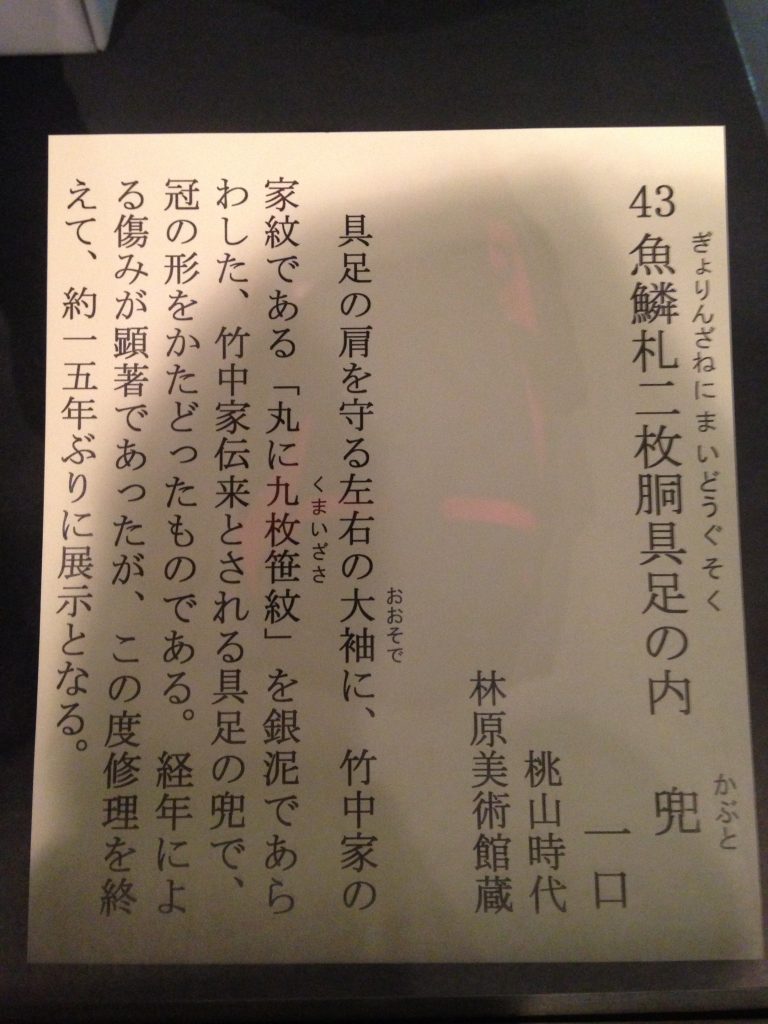 43 魚鱗札二枚胴具足の内 兜
ぎょりんざねにまいどうぐそく かぶと
一口
桃山時代
林原美術館蔵
具足の肩を守る左右の大袖に、竹中家の
おおそで
家紋である「丸に九枚笹紋」を銀泥であら
くまいざさ
わした、竹中家伝来とされる具足の兜で、
冠の形をかたどったものである。経年によ
る傷みが顕著であったが、この度修理を終
えて、約一五年ぶりに展示となる。